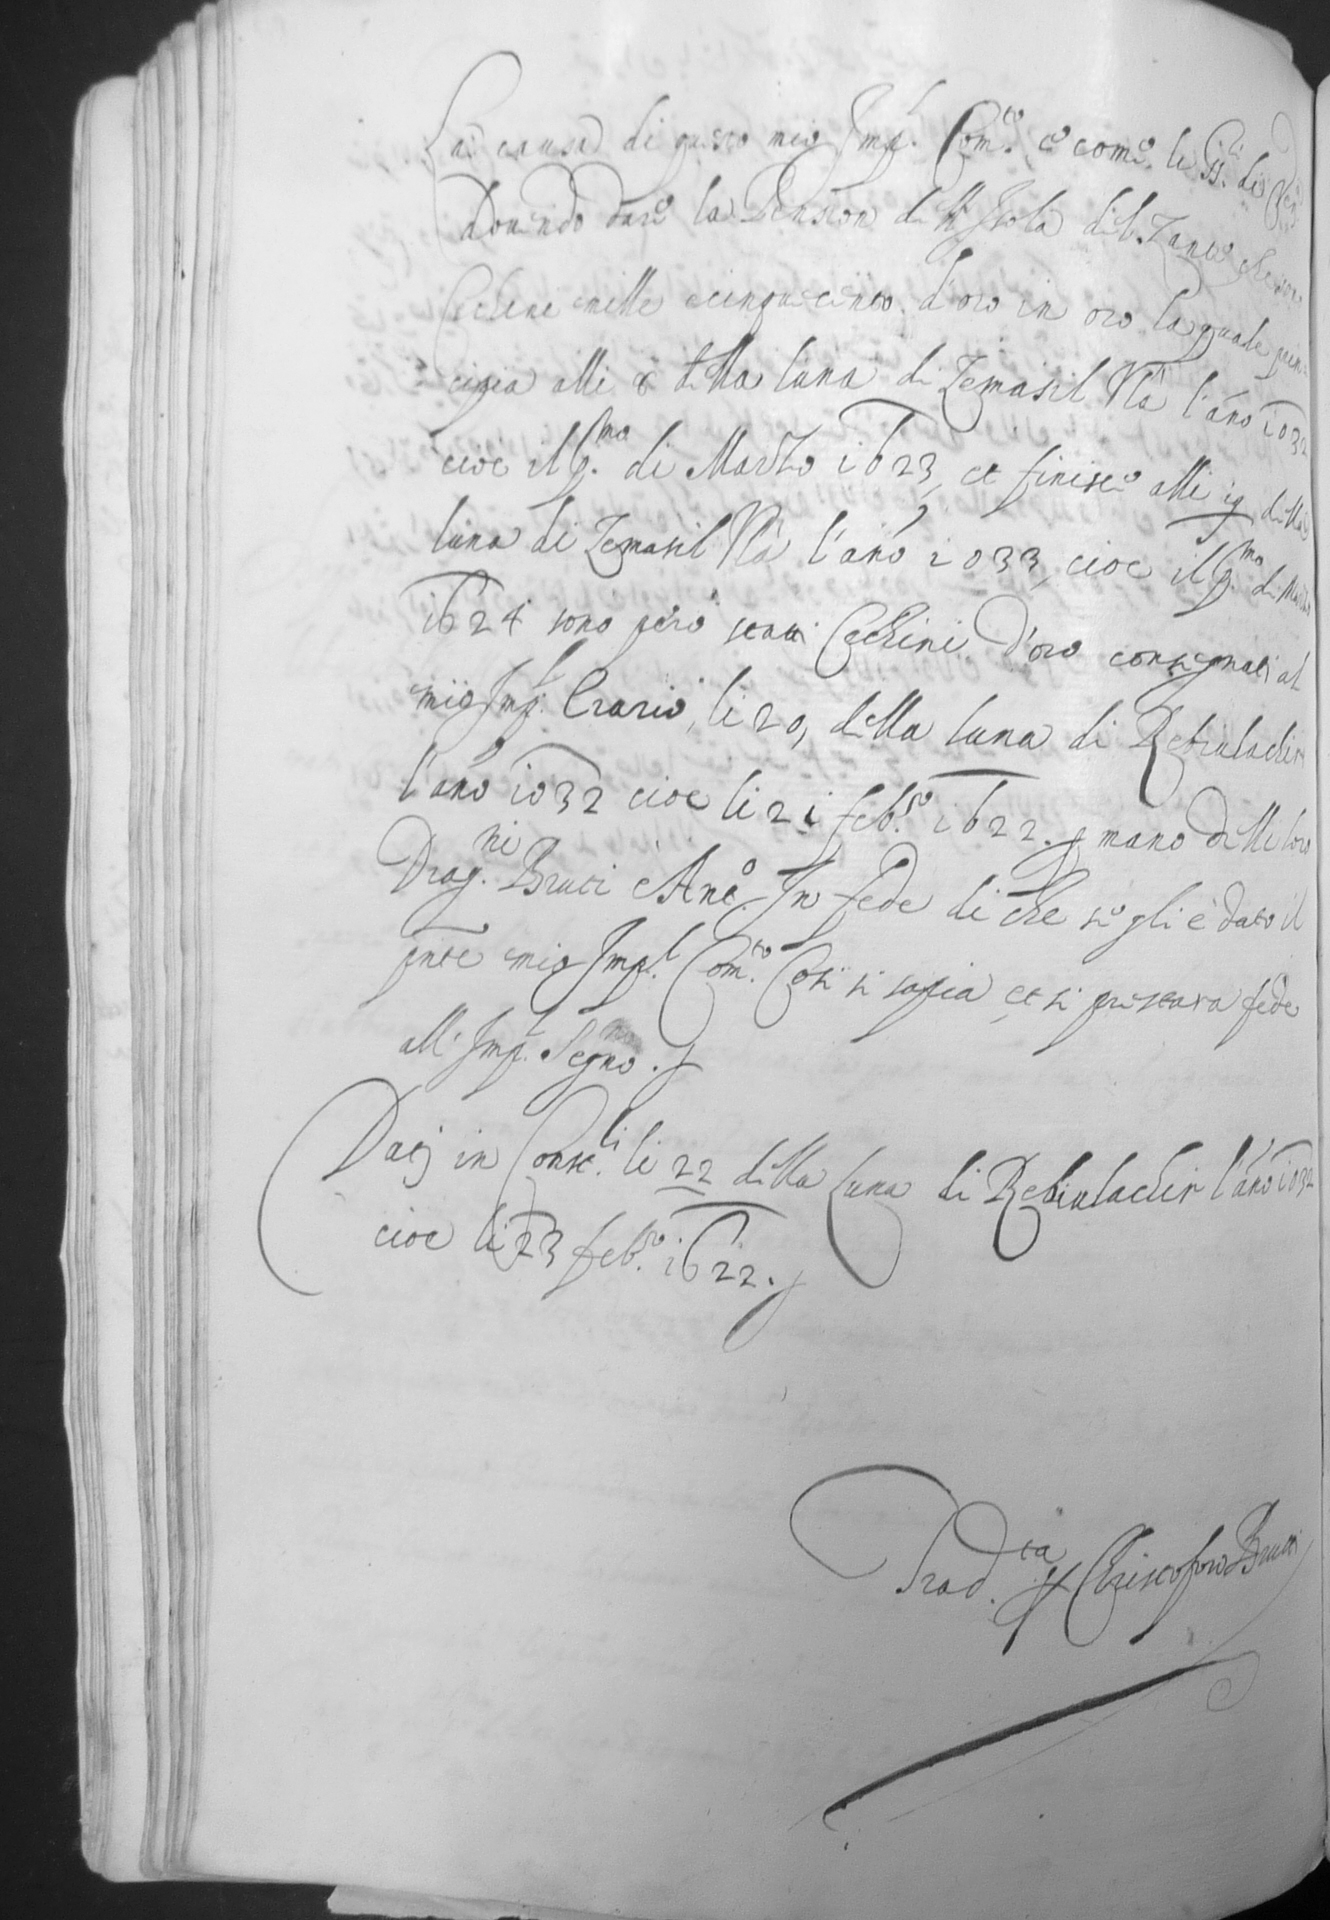 La causa di questo mio Imp.l Com.to è come li SS.ri di Ven.
Dovendo dare la Pension dell'Isola del Zante che sono
Cechini mille e cinquecento d'oro in oro la quale prin
cipia alli 8 della luna di Zemasil Vlà l'ano 1032
cioe il p.mo di Marzo 1623, et finisce alli 19 della
luna di Zemasil Vlà l'ano 1033, cioe il p.mo di Marzo
1624 sono però stati Cechini d'oro consegnati al
mio Imp.l Erario, li 20, della luna di Rebiulachir
l'ano 1032 cioe li 21 feb.ro 1622. p mano delli loro
Drag.ni Bruti e Ant.o In fede di che se gli è dato il
pnte mio Imp.l Com.to Cosi si sapia et si prestara fede
all'Imp.l Segno.
Datj in Const.li li 22 della Luna di Rebiulachir l'ano 1032
cioe li 23 feb.ro 1622.
Trad.ta p Christoforo Brutti